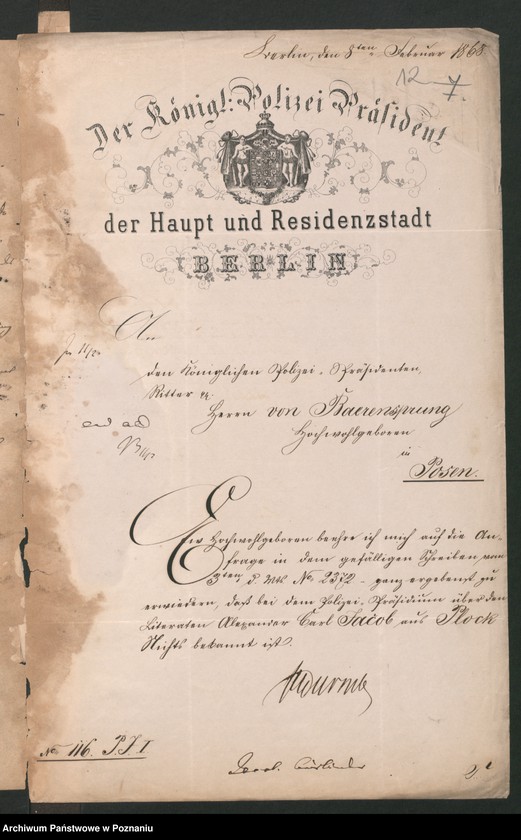 Berlin, den 8ten Februar 1868.
12
7.
Der Königl: Polizei Präsident
der Haupt und Residenzstadt
BERLIN
An
den Königlichen Polizei-Präsidenten,
Ritter pp.
Herrn von Baerensprung
Hochwohlgeboren
in
Posen.
Ew Hochwohlgeboren beehre ich mich auf die An-
frage in dem gefälligen Schreiben vom
No 2372 ganz ergebenst zu
erwiedern, daß bei dem Polizei-Präsidium über den
Literaten Alexander Carl Jacob aus Plock
Nichts bekannt ist.
No 116. P. J. I
Archiwum Państwowe w Poznaniu